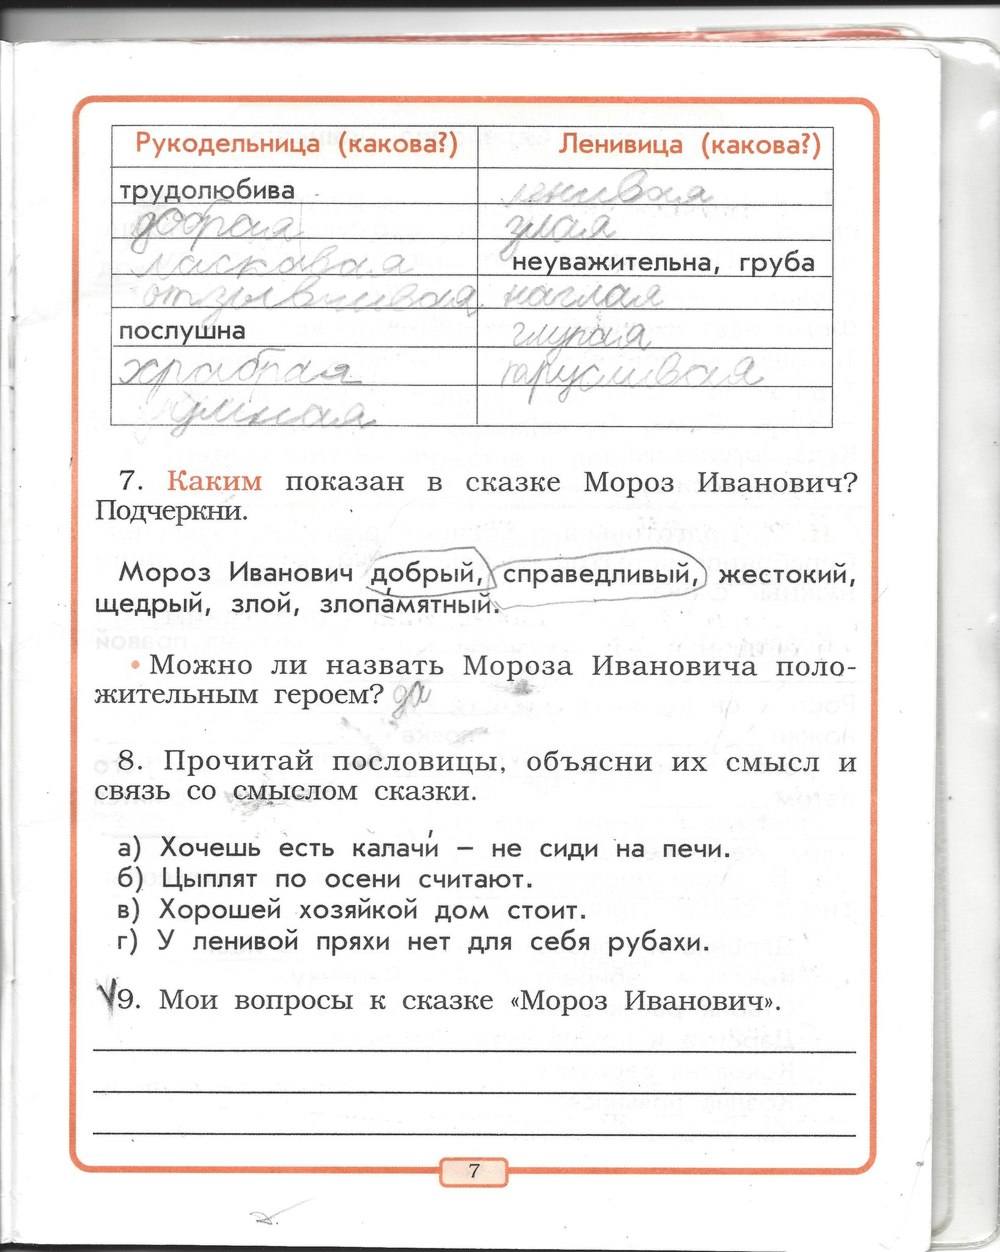 Рукодельница (какова?) Ленивица (какова?)
трудолюбива ленивая
добрая злая
ласковая неуважительна, груба
отзывчивая наглая
послушна глупая
храбрая трусливая
умная
7. Каким показан в сказке Мороз Иванович?
Подчеркни.
Мороз Иванович добрый, справедливый, жестокий,
щедрый, злой, злопамятный.
• Можно ли назвать Мороза Ивановича поло-
жительным героем? да
8. Прочитай пословицы, объясни их смысл и
связь со смыслом сказки.
а) Хочешь есть калачи́ – не сиди на печи.
б) Цыплят по осени считают.
в) Хорошей хозяйкой дом стоит.
г) У ленивой пряхи нет для себя рубахи.
V9. Мои вопросы к сказке «Мороз Иванович».
7